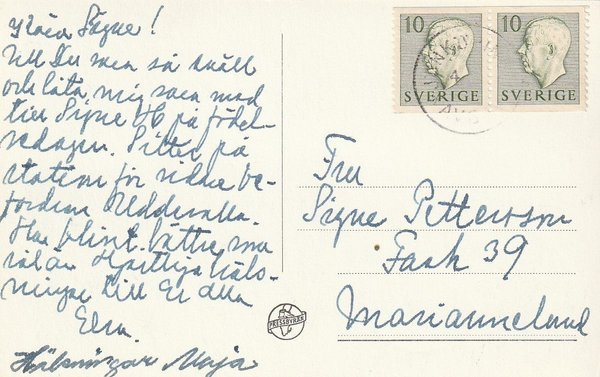 Kära Signe!
Vill Du vara så snäll
och låta mig vara med
till Signe H på födel-
sedagen. Sitter på
station för vidare be-
fordran Uddevalla.
Har blivit bättre
Hjärtliga häls-
ningar till Er alla
Elsa.
Hälsningar Maja
10 10
SVERIGE SVERIGE
Fru
Signe Petterson
Fack 39
Mariannelund
PRESSBYRÅN